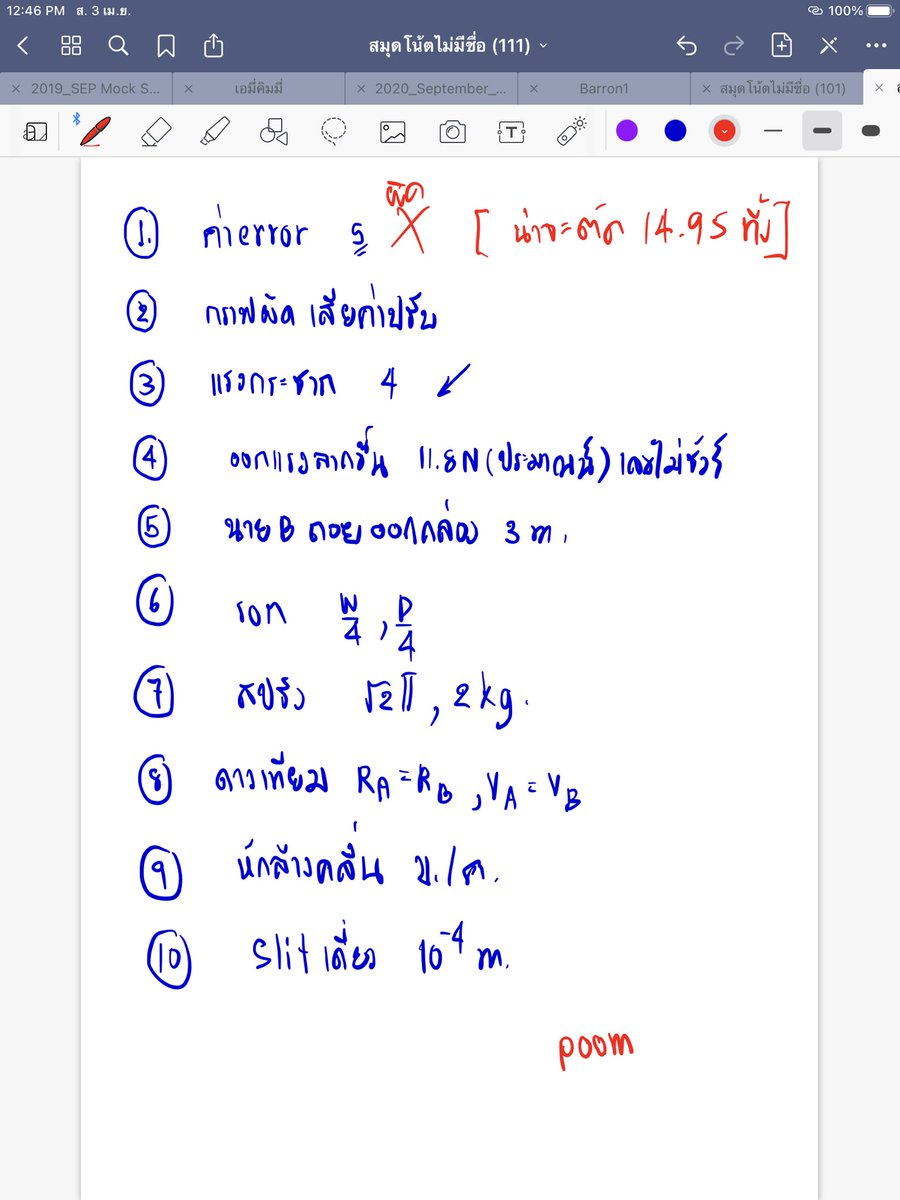 12:46 PM ส. 3 เม.ย. 100%
สมุดโน้ตไม่มีชื่อ (111)
2019_SEP Mock S... เอมี่คิมมี่ 2020_September_... Barron1 สมุดโน้ตไม่มีชื่อ (101)
ผิด
1. ค่า error 5 X [ น่าจะตัด 14.95 ทิ้ง]
2 กราฟผิด เสียค่าปรับ
3 แรงกระชาก 4
4 ออกแรงลากขึ้น 11.8N (ประมาณนี้) เลขไม่ชัวร์
5 นาย B ถอยออกกล่อง 3 m.
6 รอก W/4 , P/4
7 สปริง √2π , 2 kg.
8 ดาวเทียม RA = RB , VA = VB
9 หักล้างคลื่น ข./ค.
10 Slit เดี่ยว 10⁻⁴ m.
poom